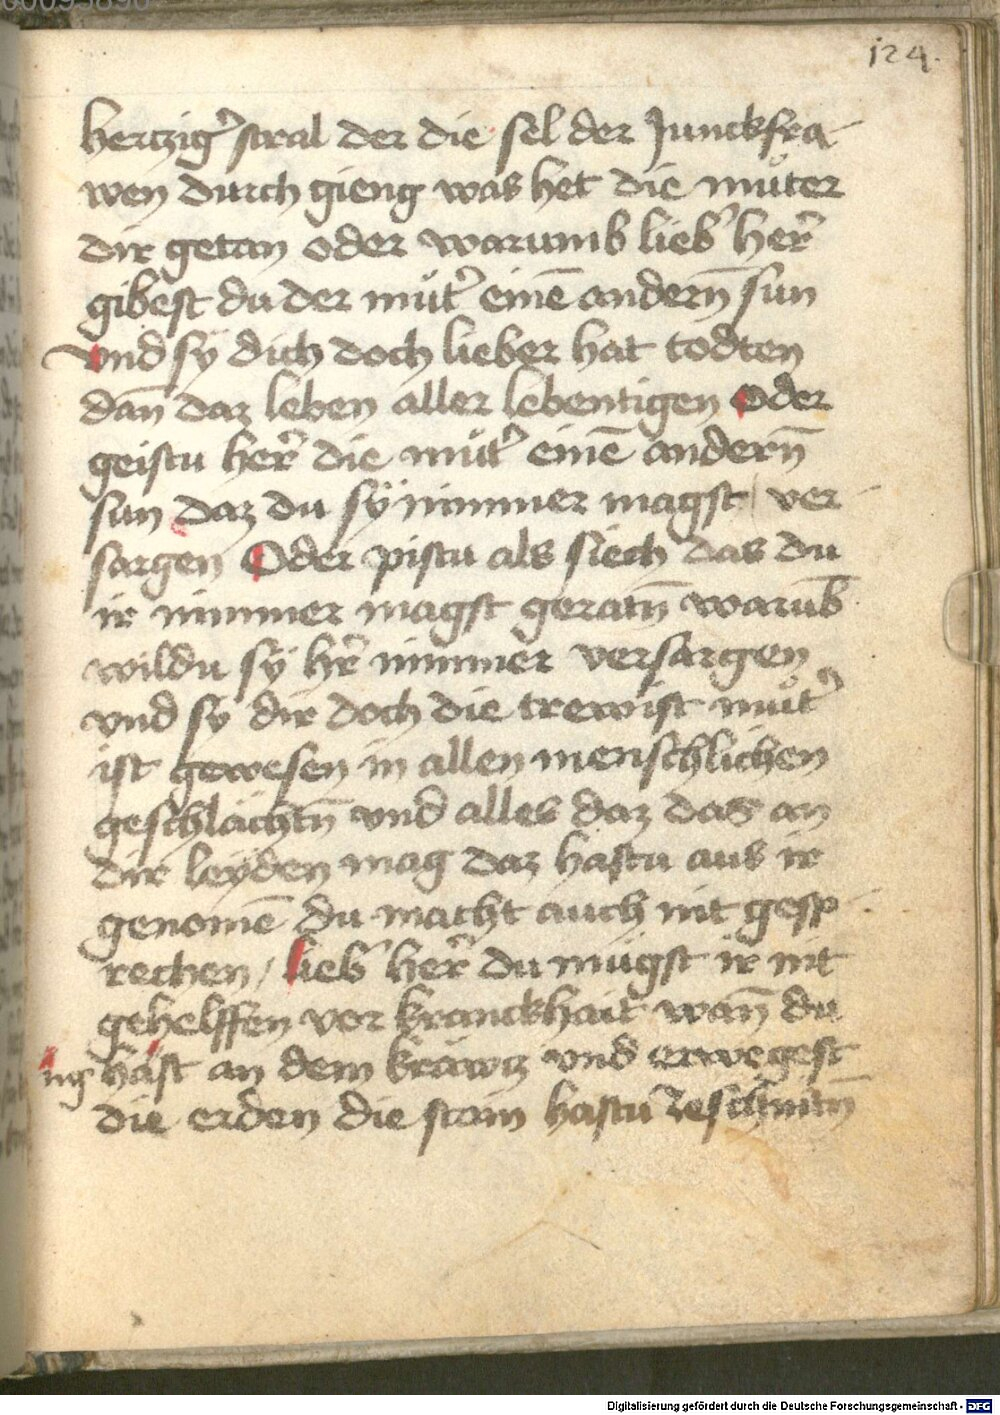 00093890
124.
hertzig᾽ stral der die sel der Junckfra-
wen durch gieng was het die muͦter
dir getan oder warumb lieb᾽ her᾽
gibest du der muͦt᾽ einē andern̄ sun
vnd sy dich doch lieber hat todten
dan̄ daz leben aller lebentigen Oder
geistu her᾽ die muͦt᾽ einē andern̄
sun daz du sÿ nimmer magst ver-
sorgen Oder pistu als siech das du
ir nimmer magst geratn̄ warūb
wildu sÿ hr᾽ nimmer versorgen
vnd sy dir doch die trewist muͦt᾽
ist gewesen in allen menschlichen
geschlächtn̄ vnd alles daz das an
dir leyden mag daz hastu aus ir
genomē du macht auch nit gesp-
rechen / lieb᾽ her᾽ du mügst ir nit
gehelffen vor kranckhait wan̄ du
ng hast an dem kräwtz vnd erwegest
die erden die stain hastu zeschnitn̄
Digitalisierung gefördert durch die Deutsche Forschungsgemeinschaft - DFG